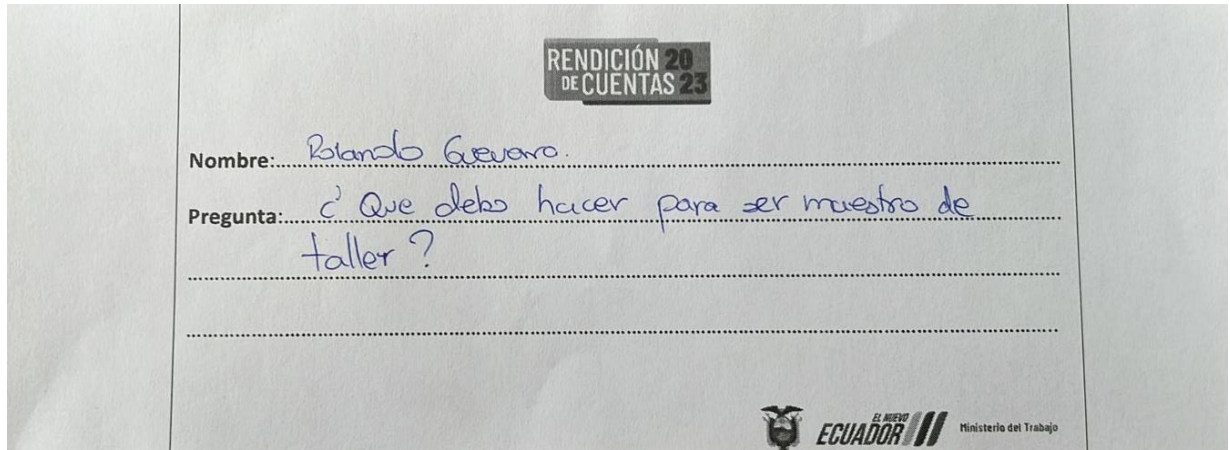 RENDICIÓN 20
DE CUENTAS 23
Nombre: Rolando Guevara.
Pregunta: ¿ Que debo hacer para ser maestro de
taller ?
EL NUEVO
ECUADOR
Ministerio del Trabajo